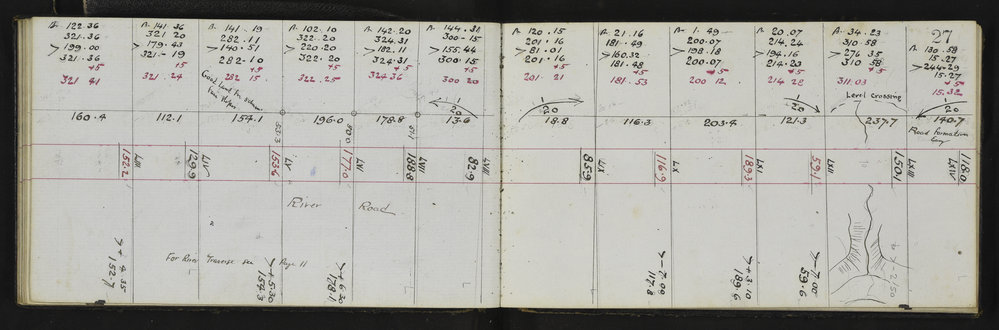 27
A. 122.36
321.36
> 199.00
321.36
+5
321 41
A. 141.36
321 20
> 179.43
321-19
+5
321.24
A. 141.19
282.11
> 140.51
282-10
+5
282 15
A. 102.10
322.20
> 220.20
322.20
+5
322.25
A. 142.20
324.31
> 182.11
324.31
+5
324 36
A. 144.30
300-15
> 155.44
300.15
+5
300 20
A. 120.15
201.16
> 81.01
201.16
+5
201. 21
A. 21.16
181.49
> 160.32
181.48
+5
181. 53
A. 1.49
200.07
> 198.18
200.07
+5
200 12
A. 20.07
214.24
> 194.16
214.23
+5
214 28
A. 34.23
310.58
> 276.35
310 58
+5
311.03
A. 130.58
15.27
> 244.29
15.27
+5
15.32
Level crossing
1
20
1
20
1
20
1
20
160.4
112.1
154.1
196.0
178.8
13.6
18.8
116.3
203.4
121.3
237.7
140.7
Road Formation
LIII
152.2
LIV
129.9
LV
153.6
LVI
177.0
LVII
188.8
LVIII
82.9
LIX
85.9
LX
116.9
LXI
189.3
LXII
59.1
LXIII
150.1
LXIV
118.0
River Road
For River Traverse see Page 11
+ 4.35
152.7
+ 5.30
154.3
+ 6.20
178.1
- 7.00
117.8
+ 3.10
189.6
- 7.00
59.6